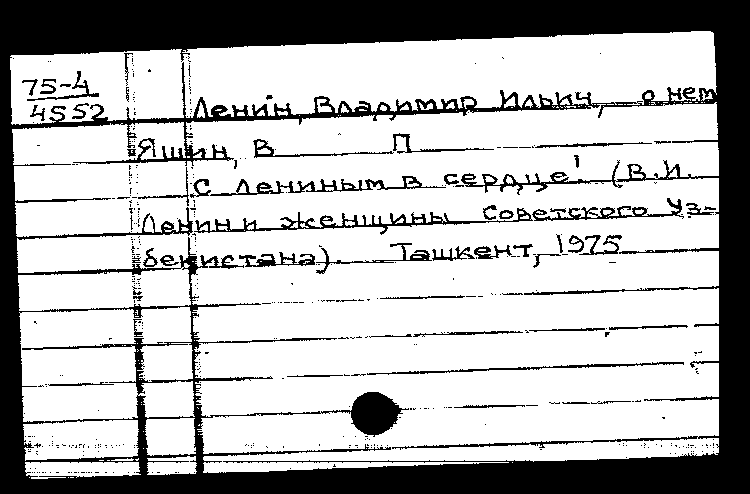 75-4
4552
Ленин, Владимир Ильич, о нем
Яшин, В П
С Лениным в сердце! (В.И.
Ленин и женщины Советского Уз-
бекистана). Ташкент, 1975